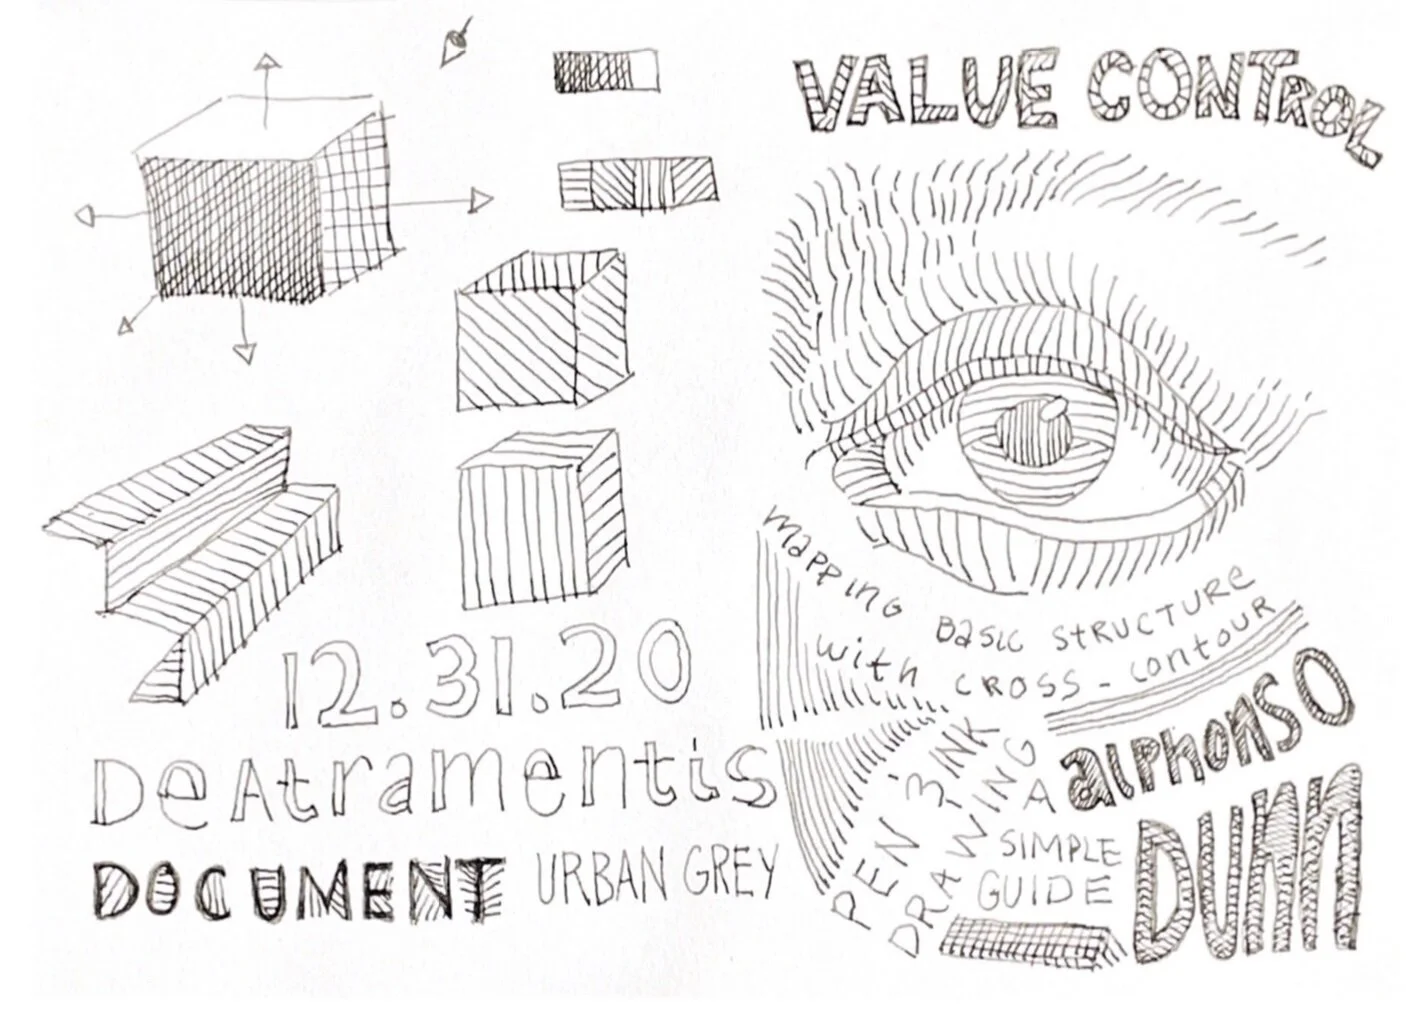 VALUE CONTROL
MAPPING BASIC STRUCTURE
with CROSS-contour
12.31.20
DeAtramentis
DOCUMENT URBAN GREY
PEN & INK
DRAWING
A
SIMPLE
GUIDE
alphonso
DUNN